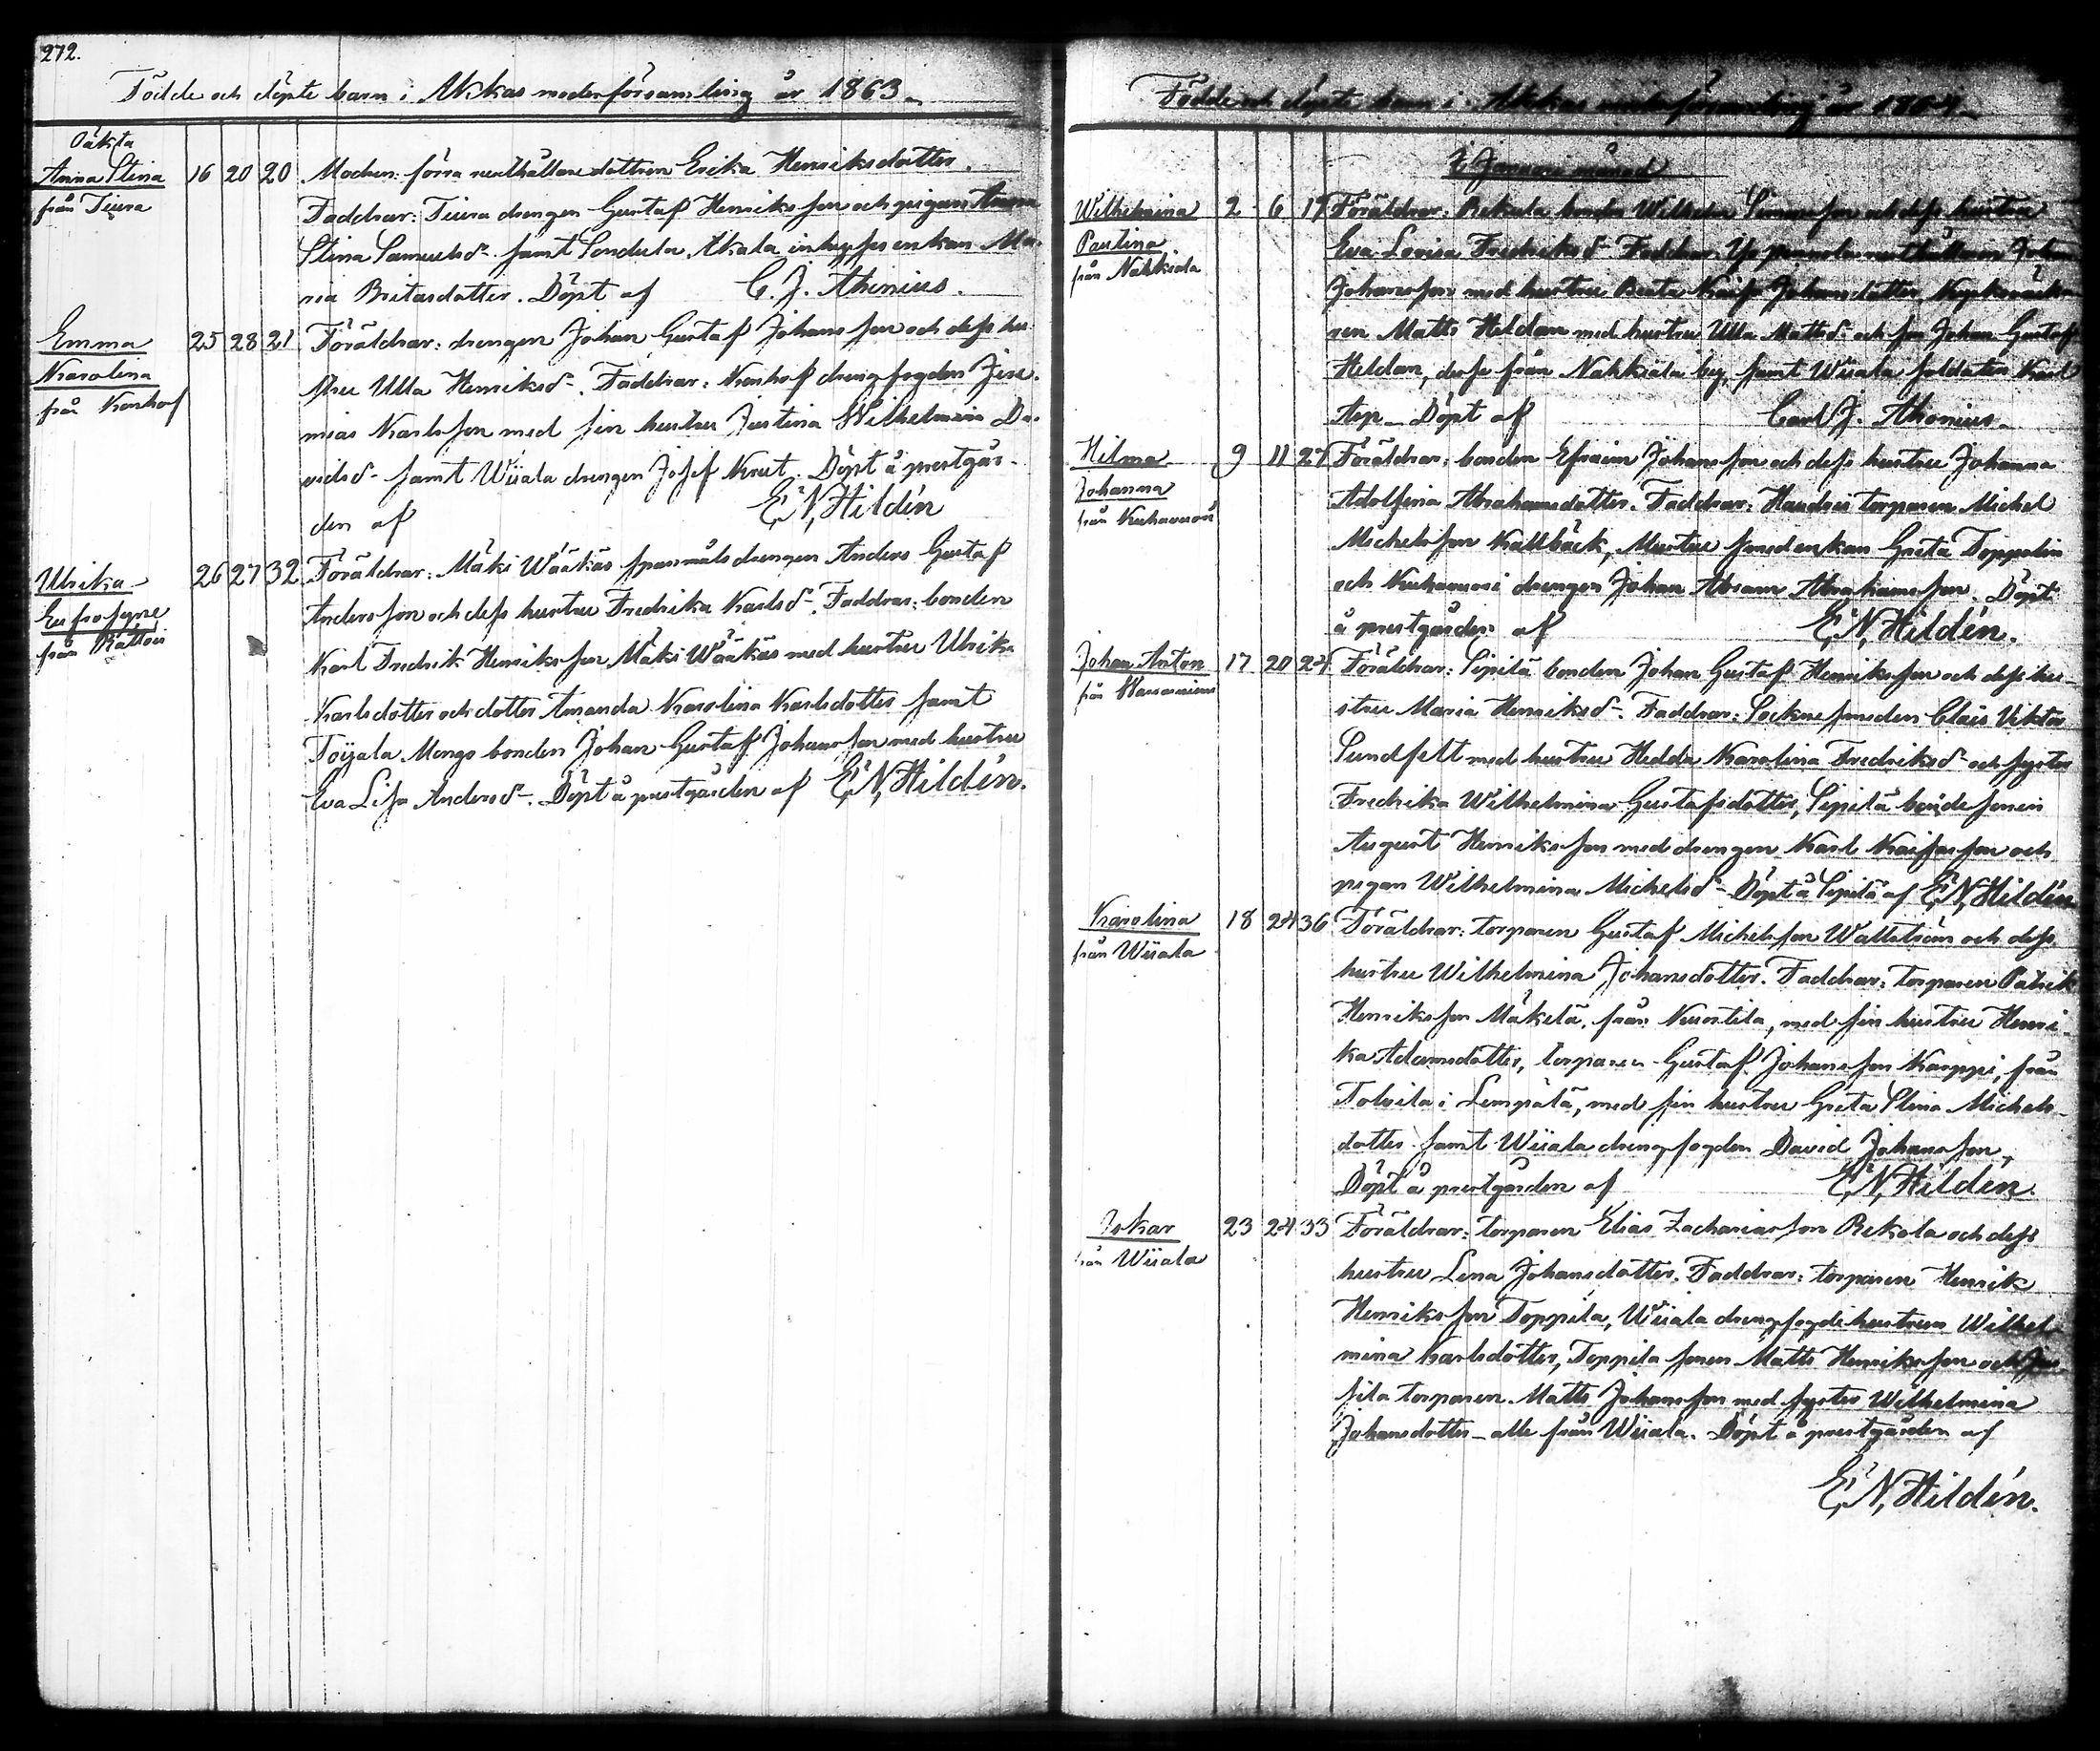 272.
Födde och döpte barn i Akkas moderförsamling år 1863.
Oäkta
Anna Stina 16 20 20 Modren: förra rusthållare dottren Erika Henriksdotter.
från Tiura Faddrar: Tiura drengen Gustaf Henriksson och pigan Anna
Stina Samuelsdr samt Sondula Akala inhyses enkan Ma-
ria Britasdotter. Döpt af C. J. Ahonius.
Emma 25 28 21 Föräldrar: drengen Johan Gustaf Johansson och dess hu-
Karolina stru Ulla Henriksdr. Faddrar: Konhof drengfogden Jere-
från Konhof mias Karlsson med sin hustru Justina Wilhelmina Da-
vidsdr samt Wiiala drengen Josef Knut. Döpt å prestgår-
den af E. N. Hildén
Ulrika 26 27 32 Föräldrar: Mäki Wääkäs spannmåls drengen Anders Gustaf
Eufrosyne Andersson och dess hustru Fredrika Karlsdr. Faddrar: bonden
från Kättöis Karl Fredrik Henriksson Mäki Wääkäs med hustru Ulrika
Karlsdotter och dotter Amanda Karolina Karlsdotter samt
Toijala Mongo bonden Johan Gustaf Johansson med hustru
Eva Lisa Andersdr. Döpt å prestgården af E. N. Hildén.
Födde och döpte barn i Akkas moderförsamling år 1864.
i Januarii månad
Wilhelmina 2 6 19 Föräldrar: Rekula bonden Wilhelm Simonsson och dess hustru
Paulina Eva Lovisa Fredriksdr Faddrar: rusthållaren Johan
från Nahkiala Johansson med hustru Beata Kaisa Johansdotter,
ren Matts Heldan med hustru Ulla Mattsdr och son Johan Gustaf
Heldan, desse från Nahkiala by, samt Wiiala soldaten Karl
Asp. Döpt af Carl J. Ahonius.
Hilma 9 11 27 Föräldrar: bonden Efraim Johansson och dess hustru Johanna
Johanna Adolfina Abrahamsdotter. Faddrar: torparen Michel
från Michelsson Kallbäck, smedenkan Greta Toppolin
och drengen Johan Abram Abrahamsson. Döpt
å prestgården af E. N. Hildén.
Johan Anton 17 20 24 Föräldrar: Sipilä bonden Johan Gustaf Henriksson och dess hu-
från stru Maria Henriksdr. Faddrar: Sockne smeden Claës Viktor
Sundfelt med hustru Hedda Karolina Fredriksdr och syster
Fredrika Wilhelmina Gustafsdotter, Sipilä bonde sonen
August Henriksson med drengen Karl Kaisasson och
pigan Wilhelmina Michelsdr. Döpt å Sipilä af E. N. Hildén
Karolina 18 24 36 Föräldrar: torparen Gustaf Michelsson och dess
från Wiiala hustru Wilhelmina Johansdotter. Faddrar: torparen Patrik
Henriksson Mäkelä, från Kuostila, med sin hustru Henri-
ka Adamsdotter, torparen Gustaf Johansson Karppi, från
Tolvila i Lempälä, med sin hustru Greta Stina Michels-
dotter samt Wiiala drengfogden David Johansson.
Döpt å prestgården af E. N. Hildén.
Oskar 23 24 33 Föräldrar: torparen Elias Zachariasson Rekola och dess
från Wiiala hustru Lena Johansdotter. Faddrar: torparen Henrik
Henriksson Toppila, Wiiala drengfogdehustrun Wilhel-
mina Carlsdotter, Toppila sonen Matts Henriksson och
sila torparen Matts Johansson med syster Wilhelmina
Johansdotter alle från Wiiala. Döpt å prestgården af
E. N. Hildén.